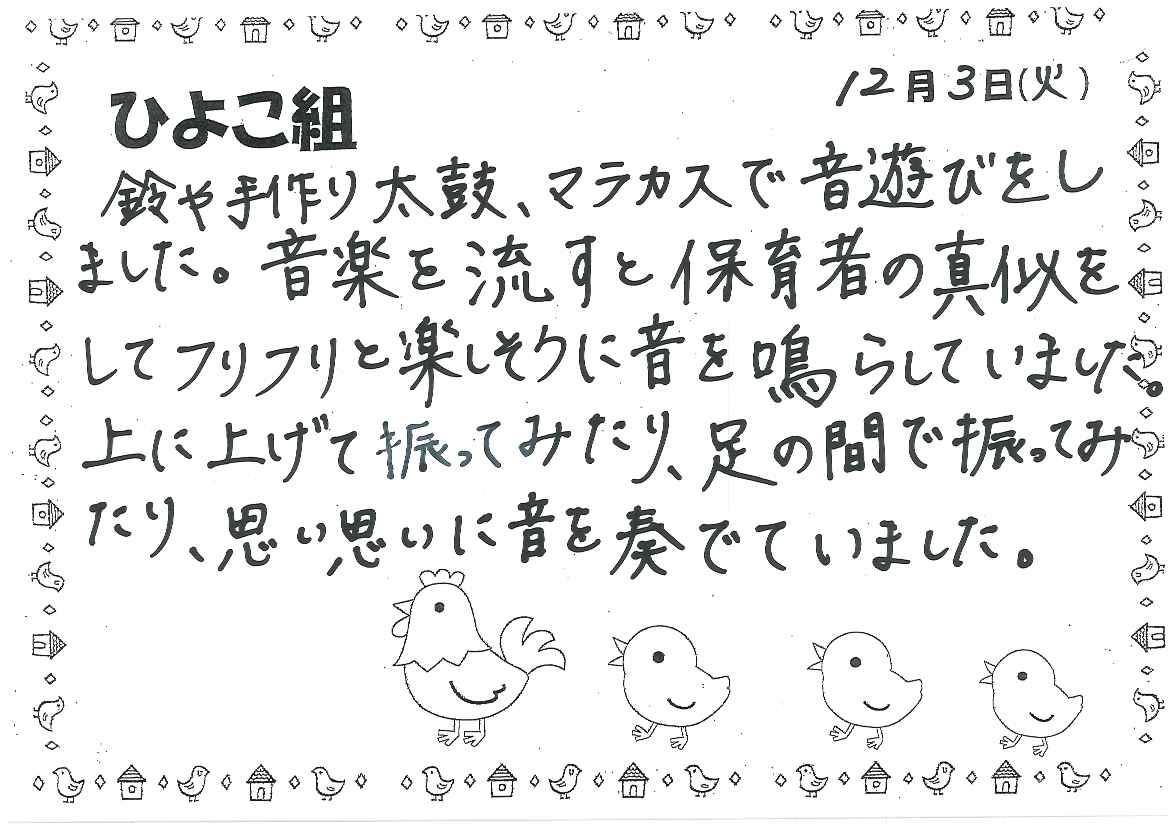 12月3日(火)
ひよこ組
鈴や手作り太鼓、マラカスで音遊びをし
ました。音楽を流すと保育者の真似を
してフリフリと楽しそうに音を鳴らしていました。
上に上げて振ってみたり、足の間で振ってみ
たり、思い思いに音を奏でていました。